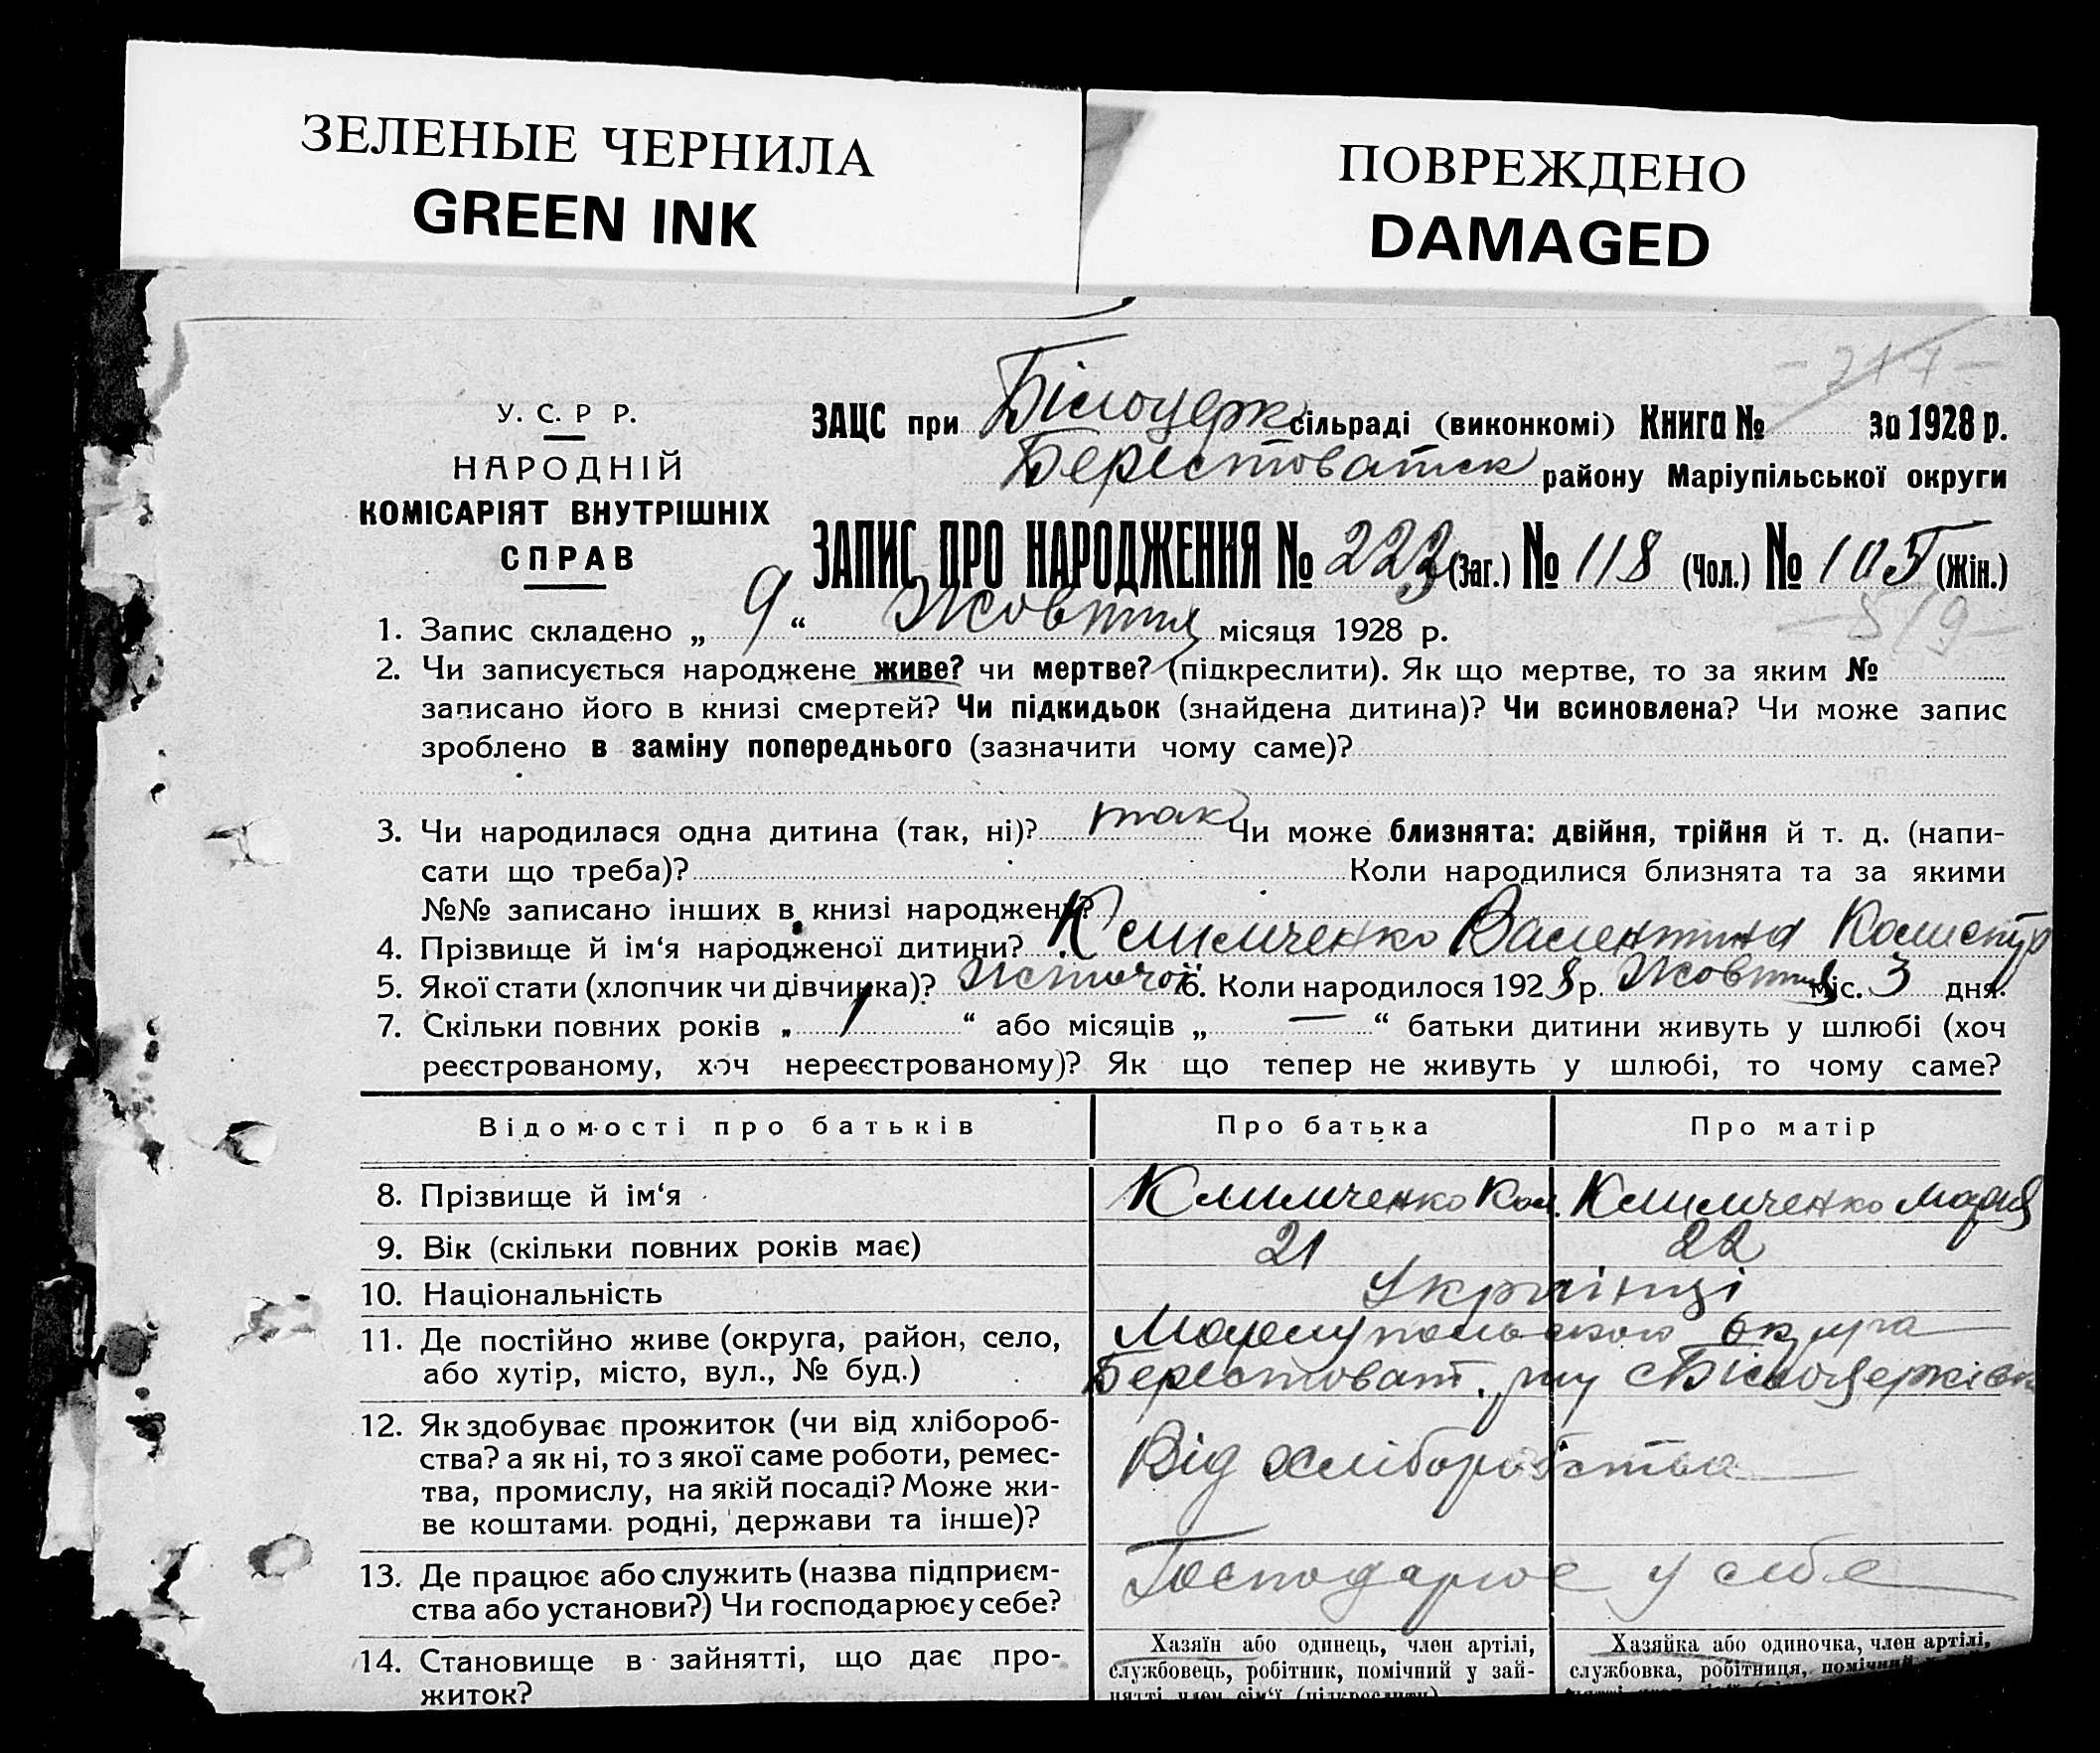 ЗЕЛЕНЫЕ ЧЕРНИЛА
GREEN INK
ПОВРЕЖДЕНО
DAMAGED
У. С. Р Р.
НАРОДНІЙ
КОМІСАРІЯТ ВНУТРІШНІХ
СПРАВ
ЗАЦС при Білоцерк сільраді (виконкомі) Книга № за 1928 р.
Берестоватск району Маріупільської округи
ЗАПИС ПРО НАРОДЖЕННЯ № 223 (Заг.) № 118 (Чол.) № 105 (Жін.)
- 519 -
1. Запис складено „ 9 “ Жовтня місяця 1928 р.
2. Чи записується народжене живе? чи мертве? (підкреслити). Як що мертве, то за яким №
записано його в книзі смертей? Чи підкидьок (знайдена дитина)? Чи всиновлена? Чи може запис
зроблено в заміну попереднього (зазначити чому саме)?
3. Чи народилася одна дитина (так, ні)? так Чи може близнята: двійня, трійня й т. д. (напи-
сати що треба)? Коли народилися близнята та за якими
№№ записано інших в книзі народжень?
4. Прізвище й ім‘я народженої дитини? Климченко Валентина
5. Якої стати (хлопчик чи дівчинка)? жіночої 6. Коли народилося 1928 р. Жовтня міс. 3 дня.
7. Скільки повних років „ 1 “ або місяців „ — “ батьки дитини живуть у шлюбі (хоч
реєстрованому, хоч нереєстрованому)? Як що тепер не живуть у шлюбі, то чому саме?
Відомості про батьків Про батька Про матір
8. Прізвище й ім‘я Климченко Кал. Климченко Мария
9. Вік (скільки повних років має) 21 22
10. Національність Українці
11. Де постійно живе (округа, район, село, округа
або хутір, місто, вул., № буд.) Берестоват. рну с Білоцерківк
12. Як здобуває прожиток (чи від хлібороб-
ства? а як ні, то з якої саме роботи, ремес- Від хліборобства
тва, промислу, на якій посаді? Може жи-
ве коштами родні, держави та інше)?
13. Де працює або служить (назва підприєм- Господарює у себе
ства або установи?) Чи господарює у себе?
14. Становище в зайнятті, що дає про-
житок?
Хазяїн або одинець, член артілі,
службовець, робітник, помічний у зай-
нятті член сім‘ї (підкреслити)
Хазяйка або одиночка, член артілі,
службовка, робітниця, помічний